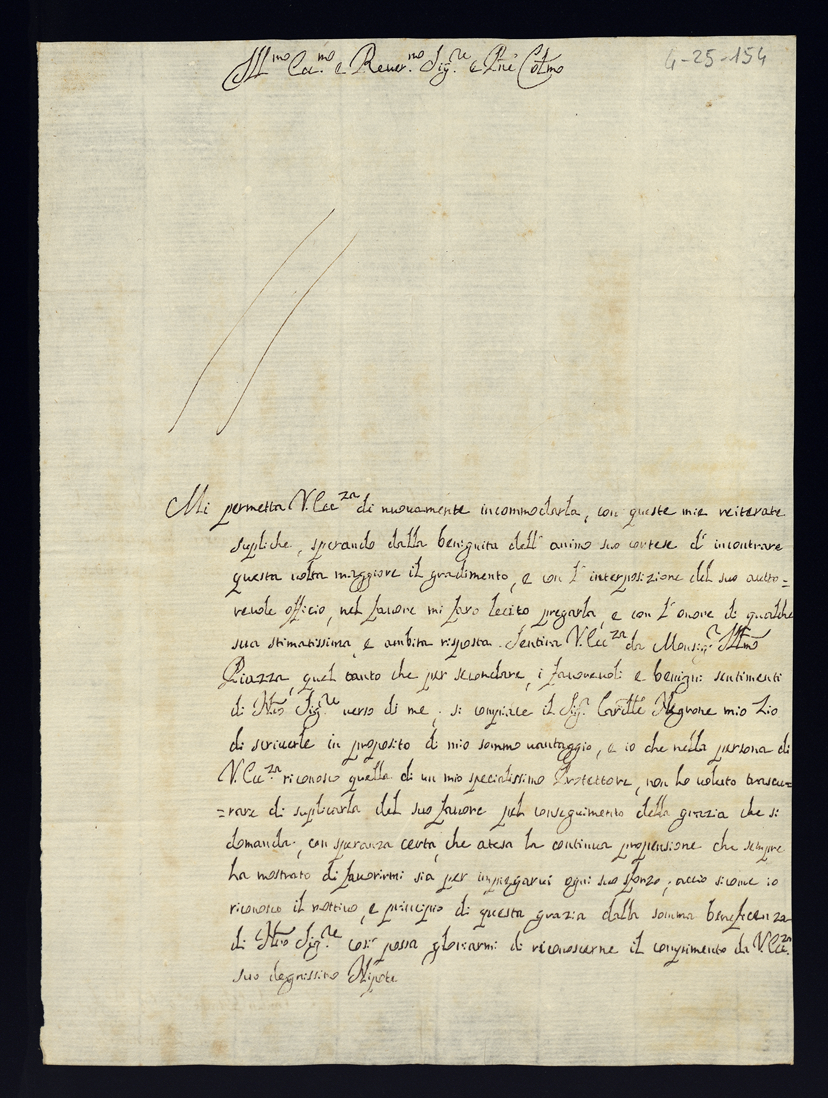 Ill.mo Ecc.mo e Rever.mo Sig.re e Pne Colmo
4-25-154
Mi permetta V. Ecc.za di nuovamente incommodarla, con queste mie reiterate
supliche, sperando dalla benignita dell' animo suo cortese d' incontrare
questa volta maggiore il gradimento, e con l' interposizione del suo autto=
revole officio, nel favore mi faro lecito pregarla, e con l' onore di qualche
sua stimatissima, e ambita risposta. Sentira V. Ecc.za da Monsig.r Illmo
Piazza, quel tanto che per secondare, i favorevoli e benigni sentimenti
di Nro Sig.re verso di me, si compiace il Sig.r Cardle Negrone mio Zio
di scriverle in proposito di mio sommo vantaggio, e io che nella persona di
V. Ecc.za riconosco quella di un mio specialissimo Protettore, non ho voluto trascu=
=rare di suplicarla del suo favore pel conseguimento della grazia che si
domanda, con speranza certa, che atesa la continua propensione che sempre
ha mostrato di favorirmi sia per impiegarvi ogni suo sforzo, accio sicome io
riconosco il mottivo, e principio di questa grazia dalla somma beneficenza
di Nro Sig.re cosi possa gloriarmi di riconoscerne il compimento da V. Ecc.za
suo degnissimo Nipote